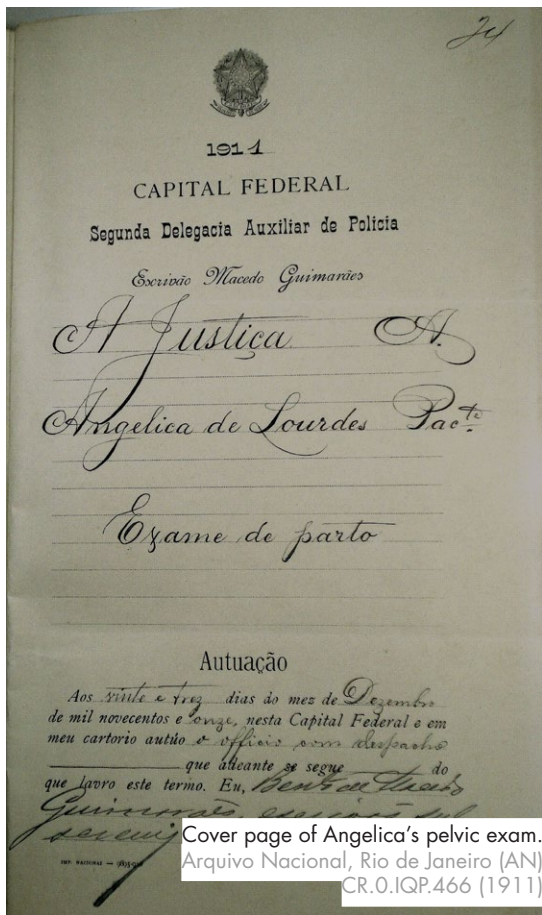 24
1911
CAPITAL FEDERAL
Segunda Delegacia Auxiliar de Policia
Escrivão Macedo Guimarães
A Justiça A.
Angelica de Lourdes Pac.te
Exame de parto
Autuação
Aos vinte e trez dias do mez de Dezembro
de mil novecentos e onze, nesta Capital Federal e em
meu cartorio autúo o officio com despacho
que adeante se segue do
que lavro este termo. Eu, Bento de Macedo
Guimarães, escrivão
IMP. NACIONAL
Cover page of Angelica's pelvic exam.
Arquivo Nacional, Rio de Janeiro (AN)
CR.0.IQP.466 (1911)